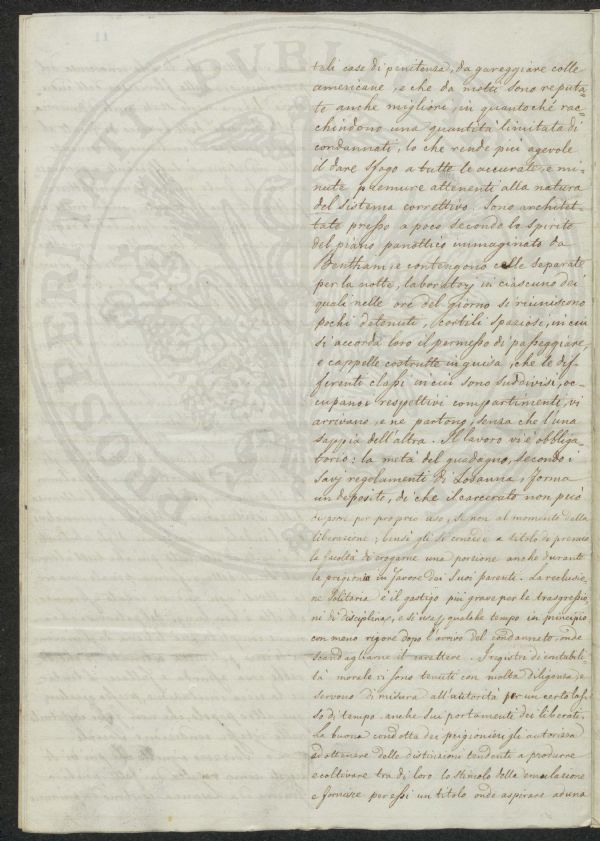 tali case di penitenza, da gareggiare colle
americane, e che da molti sono reputa=
te anche migliori, in quantoché rac=
chiudono una quantità limitata di
condannati, lo che rende più agevole
il dare sfogo a tutte le accurate, e mi-
nute premure attenenti alla natura
del sistema correttivo. Sono architet-
tate presso a poco secondo lo spirito
del piano panottico immaginato da
Bentham; e contengono celle separate
per la notte, laboratorj in ciascuno dei
quali nelle ore del giorno si riuniscono
pochi detenuti, cortili spaziosi, in cui
si accorda loro il permesso di passeggiare,
e cappelle costrutte in guisa, che le dif-
ferenti classi in cui sono suddivisi, oc-
cupano i respettivi compartimenti, vi
arrivano, e ne partono, senza che l'una
sappia dell'altra. Il lavoro vi è obbliga-
torio: la metà del guadagno, secondo i
savj regolamenti di Losanna, forma
un deposito, di che il carcerato non può
disporre per proprio uso, se non al momento della
liberazione; bensì gli si concede a titolo di premio
la facoltà di erogarne una porzione anche durante
la prigionia in favore dei suoi parenti. La reclusio-
ne solitaria è il gastigo più grave per le trasgressio-
ni di disciplina, e si usa qualche tempo in principio
con meno rigore dopo l'arrivo del condannato, onde
scandagliarne il carattere. I registri di contabili-
tà morale vi sono tenuti con molta diligenza, e
servono di misura all'autorità per un certo las-
so di tempo anche sui portamenti dei liberati.
La buona condotta dei prigionieri gli autorizza
ad ottenere delle distinzioni tendenti a produrre
e coltivare tra di loro lo stimolo della emulazione
e fornisce per essi un titolo onde aspirare ad una
PROSPERITATI PVBLI
11